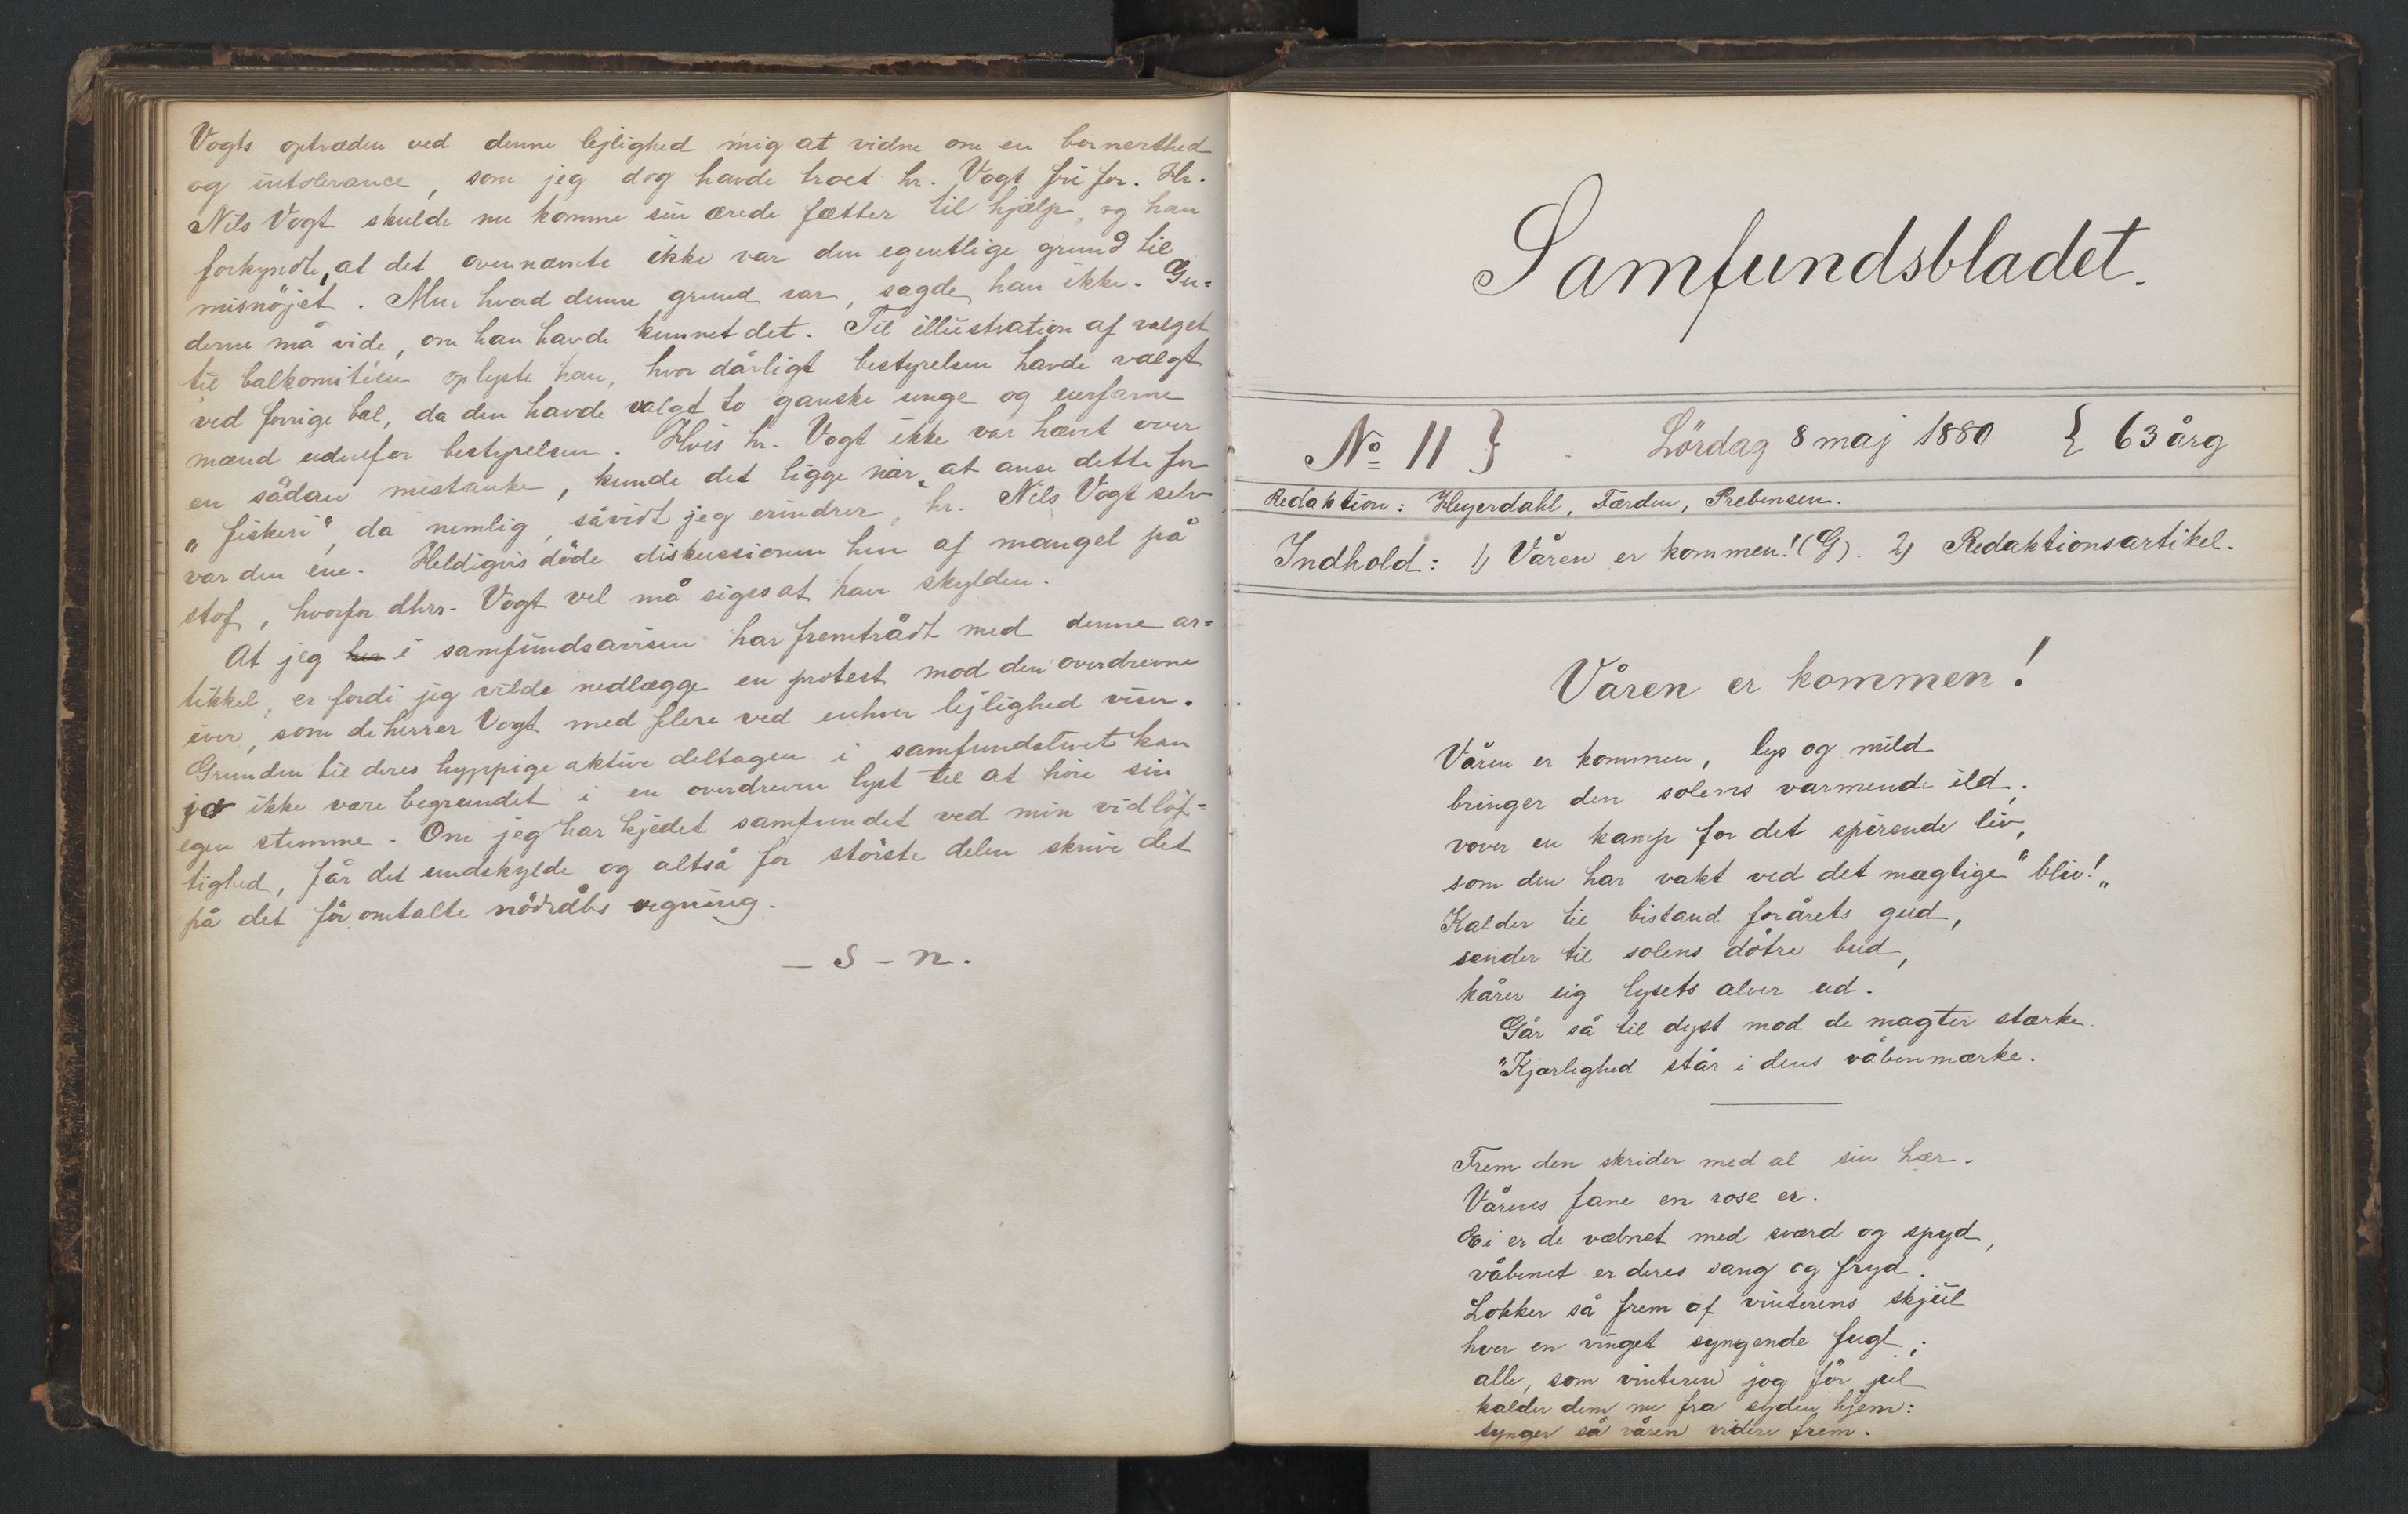 Vogts optræden ved denne lejlighed mig at vidne om en bornerthed
og intolerance, som jeg dog havde troet hr. Vogt fri for. Hr.
Nils Vogt skulde nu komme sin ærede fætter til hjælp, og han
forkyndte, at det ovennævnte ikke var den egentlige grund til
misnöjet. Men hvad denne grund var, sagde han ikke. Gu=
derne må vide, om han havde kunnet det. Til illustration af valget
til balkomitéen oplyste han, hvor dårligt bestyrelsen havde valgt
ved forrige bal, da den havde valgt to ganske unge og uerfarne
mænd udenfor bestyrelsen. Hvis hr. Vogt ikke var hævet over
en sådan mistanke, kunde det ligge nær at anse dette for
„fiskeri“, da nemlig, såvidt jeg erindrer, hr. Nils Vogt selv
var den ene. Heldigvis döde diskussionen hen af mangel på
stof, hvorfor dhrr. Vogt vel må siges at have skylden.
At jeg her i samfundsavisen har fremtrådt med denne ar=
tikkel, er fordi jeg vilde nedlægge en protest mod den overdrevne
iver, som de herrer Vogt med flere ved enhver lejlighed viser.
Grunden til deres hyppige aktive deltagen i samfundslivet kan
jo ikke være begrundet i en overdreven lyst til at höre sin
egen stemme. Om jeg har kjedet samfundet ved min vidlöf=
tighed, får det undskylde og altså for störste delen skrive det
på det för omtalte nödråbs regning.
– S – n.
Samfundsbladet.
No 11 } Lördag 8 maj 1880 { 63 årg
Redaktion: Heyerdahl, Færden, Prebensen.
Indhold: 1) Våren er kommen! (G). 2) Redaktionsartikel.
Våren er kommen!
Våren er kommen, lys og mild
bringer den solens varmende ild;
vover en kamp for det spirende liv,
som den har vakt ved det mægtige "bliv!„
Kalder til bistand forårets gud,
sender til solens dötre bud,
kårer sig lysets alver ud.
Går så til dyst mod de magter stærke.
"Kjærlighed står i dens våbenmærke.
Frem den skrider med al sin hær.
Vårens fane en rose er.
Ei er de væbnet med sværd og spyd,
våbenet er deres sang og fryd.
Lokker så frem af vinterens skjul
hver en vinget syngende fugl;
alle, som vinteren jog för jul
kalder dem nu fra syden hjem:
synger så våren videre frem.